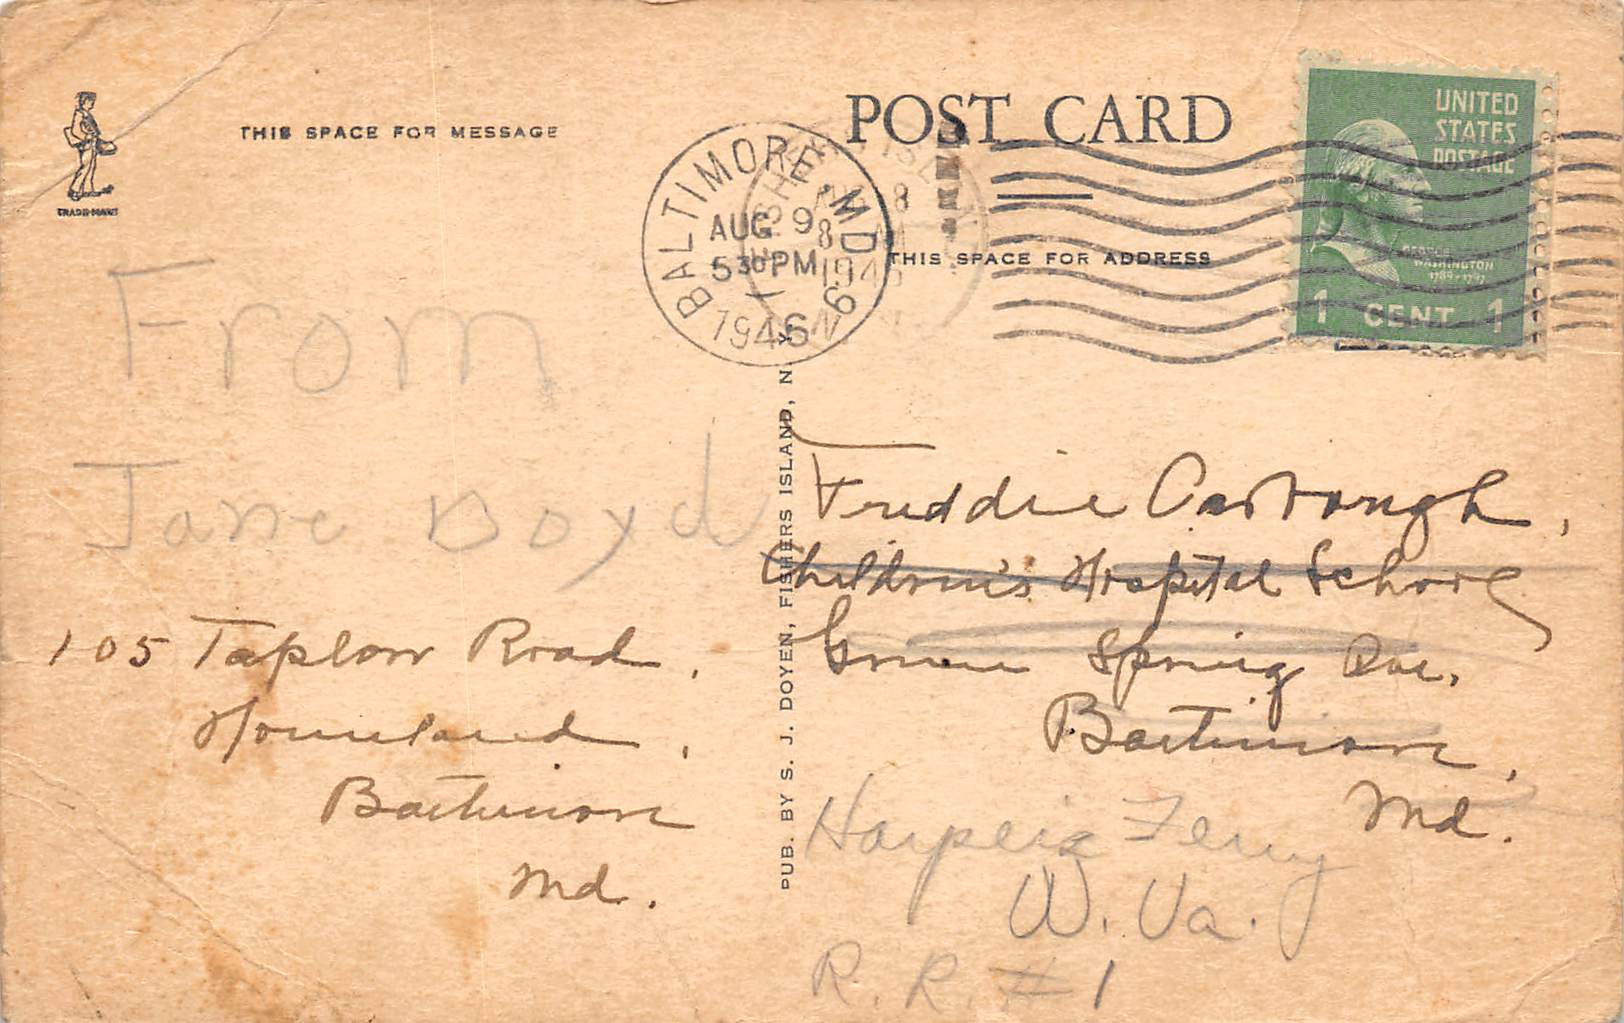 THIS SPACE FOR MESSAGE
TRADE-MARK
POST CARD
THIS SPACE FOR ADDRESS
UNITED
STATES
POSTAGE
GEORGE
WASHINGTON
1789-1797
1 CENT 1
BALTIMORE MD
AUG 9
5 30 PM
1946
8
1946
From
Jane Boyd
105 Taplow Road,
Homeland,
Baltimore
Md.
PUB. BY S. J. DOYEN, FISHERS ISLAND, N. Y.
Freddie
Children's Hospital School
Greene Spring Ave.
Baltimore,
Md.
Harpers Ferry
W. Va.
R. R. #1